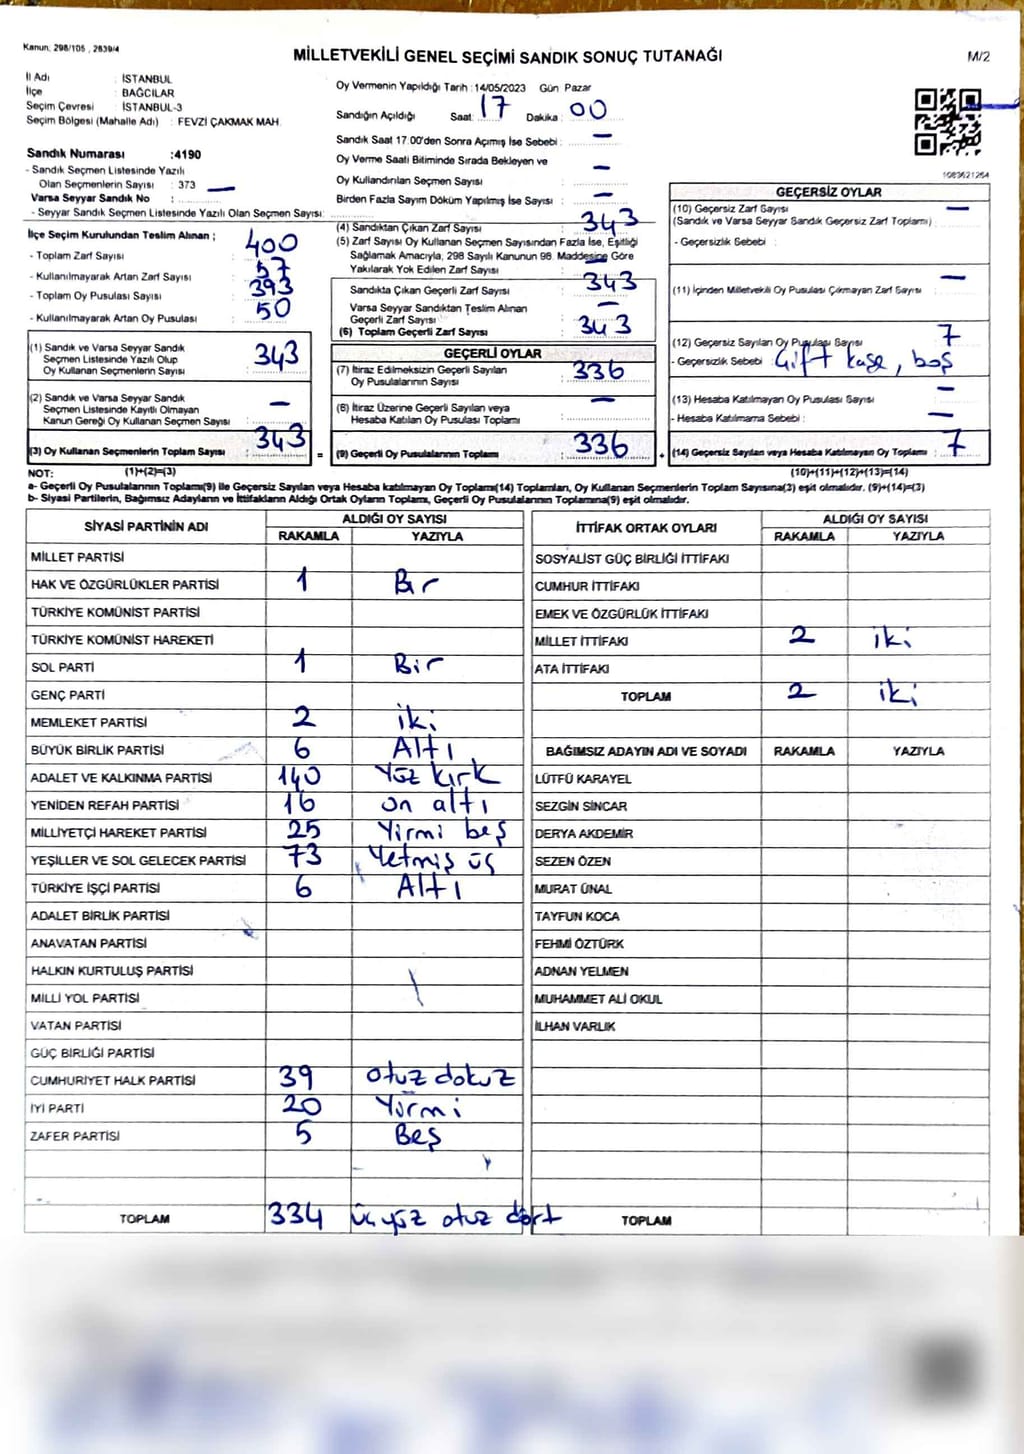 Kanun, 298/105 , 2839/4
MİLLETVEKİLİ GENEL SEÇİMİ SANDIK SONUÇ TUTANAĞI
M/2
İl Adı : İSTANBUL
İlçe : BAĞCILAR
Seçim Çevresi : İSTANBUL-3
Seçim Bölgesi (Mahalle Adı) : FEVZİ ÇAKMAK MAH.
Sandık Numarası :4190
- Sandık Seçmen Listesinde Yazılı
Olan Seçmenlerin Sayısı : 373 —
Varsa Seyyar Sandık No :
- Seyyar Sandık Seçmen Listesinde Yazılı Olan Seçmen Sayısı:
Oy Vermenin Yapıldığı Tarih : 14/05/2023 Gün Pazar
Sandığın Açıldığı Saat: 17 Dakika: 00
Sandık Saat 17:00'den Sonra Açımış İse Sebebi : —
Oy Verme Saati Bitiminde Sırada Bekleyen ve
Oy Kullandırılan Seçmen Sayısı : —
Birden Fazla Sayım Döküm Yapılmış İse Sayısı : —
1083621264
İlçe Seçim Kurulundan Teslim Alınan ;
- Toplam Zarf Sayısı : 400
- Kullanılmayarak Artan Zarf Sayısı : 57
- Toplam Oy Pusulası Sayısı : 393
- Kullanılmayarak Artan Oy Pusulası : 50
(1) Sandık ve Varsa Seyyar Sandık
Seçmen Listesinde Yazılı Olup
Oy Kullanan Seçmenlerin Sayısı : 343
(2) Sandık ve Varsa Seyyar Sandık
Seçmen Listesinde Kayıtlı Olmayan
Kanun Gereği Oy Kullanan Seçmen Sayısı : —
(3) Oy Kullanan Seçmenlerin Toplam Sayısı : 343
(4) Sandıktan Çıkan Zarf Sayısı : 343
(5) Zarf Sayısı Oy Kullanan Seçmen Sayısından Fazla İse, Eşitliği
Sağlamak Amacıyla, 298 Sayılı Kanunun 98. Maddesine Göre
Yakılarak Yok Edilen Zarf Sayısı : —
Sandıkta Çıkan Geçerli Zarf Sayısı : 343
Varsa Seyyar Sandıktan Teslim Alınan
Geçerli Zarf Sayısı : —
(6) Toplam Geçerli Zarf Sayısı : 343
GEÇERLİ OYLAR
(7) İtiraz Edilmeksizin Geçerli Sayılan
Oy Pusulalarının Sayısı : 336
(8) İtiraz Üzerine Geçerli Sayılan veya
Hesaba Katılan Oy Pusulası Toplamı : —
= (9) Geçerli Oy Pusulalarının Toplamı : 336
GEÇERSİZ OYLAR
(10) Geçersiz Zarf Sayısı : —
(Sandık ve Varsa Seyyar Sandık Geçersiz Zarf Toplamı)
- Geçersizlik Sebebi :
(11) İçinden Milletvekili Oy Pusulası Çıkmayan Zarf Sayısı : —
(12) Geçersiz Sayılan Oy Pusulası Sayısı : 7
- Geçersizlik Sebebi Çift kaşe, boş
(13) Hesaba Katılmayan Oy Pusulası Sayısı : —
- Hesaba Katılmama Sebebi : —
+ (14) Geçersiz Sayılan veya Hesaba Katılmayan Oy Toplamı : 7
NOT: (1)+(2)=(3) (10)+(11)+(12)+(13)=(14)
a- Geçerli Oy Pusulalarının Toplamı(9) ile Geçersiz Sayılan veya Hesaba katılmayan Oy Toplamı(14) Toplamları, Oy Kullanan Seçmenlerin Toplam Sayısına(3) eşit olmalıdır. (9)+(14)=(3)
b- Siyasi Partilerin, Bağımsız Adayların ve İttifakların Aldığı Ortak Oyların Toplamı, Geçerli Oy Pusulalarının Toplamına(9) eşit olmalıdır.
SİYASİ PARTİNİN ADI ALDIĞI OY SAYISI
RAKAMLA YAZIYLA
MİLLET PARTİSİ
HAK VE ÖZGÜRLÜKLER PARTİSİ 1 Bir
TÜRKİYE KOMÜNİST PARTİSİ
TÜRKİYE KOMÜNİST HAREKETİ
SOL PARTİ 1 Bir
GENÇ PARTİ
MEMLEKET PARTİSİ 2 iki
BÜYÜK BİRLİK PARTİSİ 6 Altı
ADALET VE KALKINMA PARTİSİ 140 Yüz kırk
YENİDEN REFAH PARTİSİ 16 on altı
MİLLİYETÇİ HAREKET PARTİSİ 25 Yirmi beş
YEŞİLLER VE SOL GELECEK PARTİSİ 73 Yetmiş üç
TÜRKİYE İŞÇİ PARTİSİ 6 Altı
ADALET BİRLİK PARTİSİ
ANAVATAN PARTİSİ
HALKIN KURTULUŞ PARTİSİ
MİLLİ YOL PARTİSİ
VATAN PARTİSİ
GÜÇ BİRLİĞİ PARTİSİ
CUMHURİYET HALK PARTİSİ 39 otuz dokuz
İYİ PARTİ 20 Yirmi
ZAFER PARTİSİ 5 Beş
TOPLAM 334 üçyüz otuz dört
İTTİFAK ORTAK OYLARI ALDIĞI OY SAYISI
RAKAMLA YAZIYLA
SOSYALİST GÜÇ BİRLİĞİ İTTİFAKI
CUMHUR İTTİFAKI
EMEK VE ÖZGÜRLÜK İTTİFAKI
MİLLET İTTİFAKI 2 iki
ATA İTTİFAKI
TOPLAM 2 iki
BAĞIMSIZ ADAYIN ADI VE SOYADI RAKAMLA YAZIYLA
LÜTFÜ KARAYEL
SEZGİN SİNCAR
DERYA AKDEMİR
SEZEN ÖZEN
MURAT ÜNAL
TAYFUN KOCA
FEHMİ ÖZTÜRK
ADNAN YELMEN
MUHAMMET ALİ OKUL
İLHAN VARLIK
TOPLAM